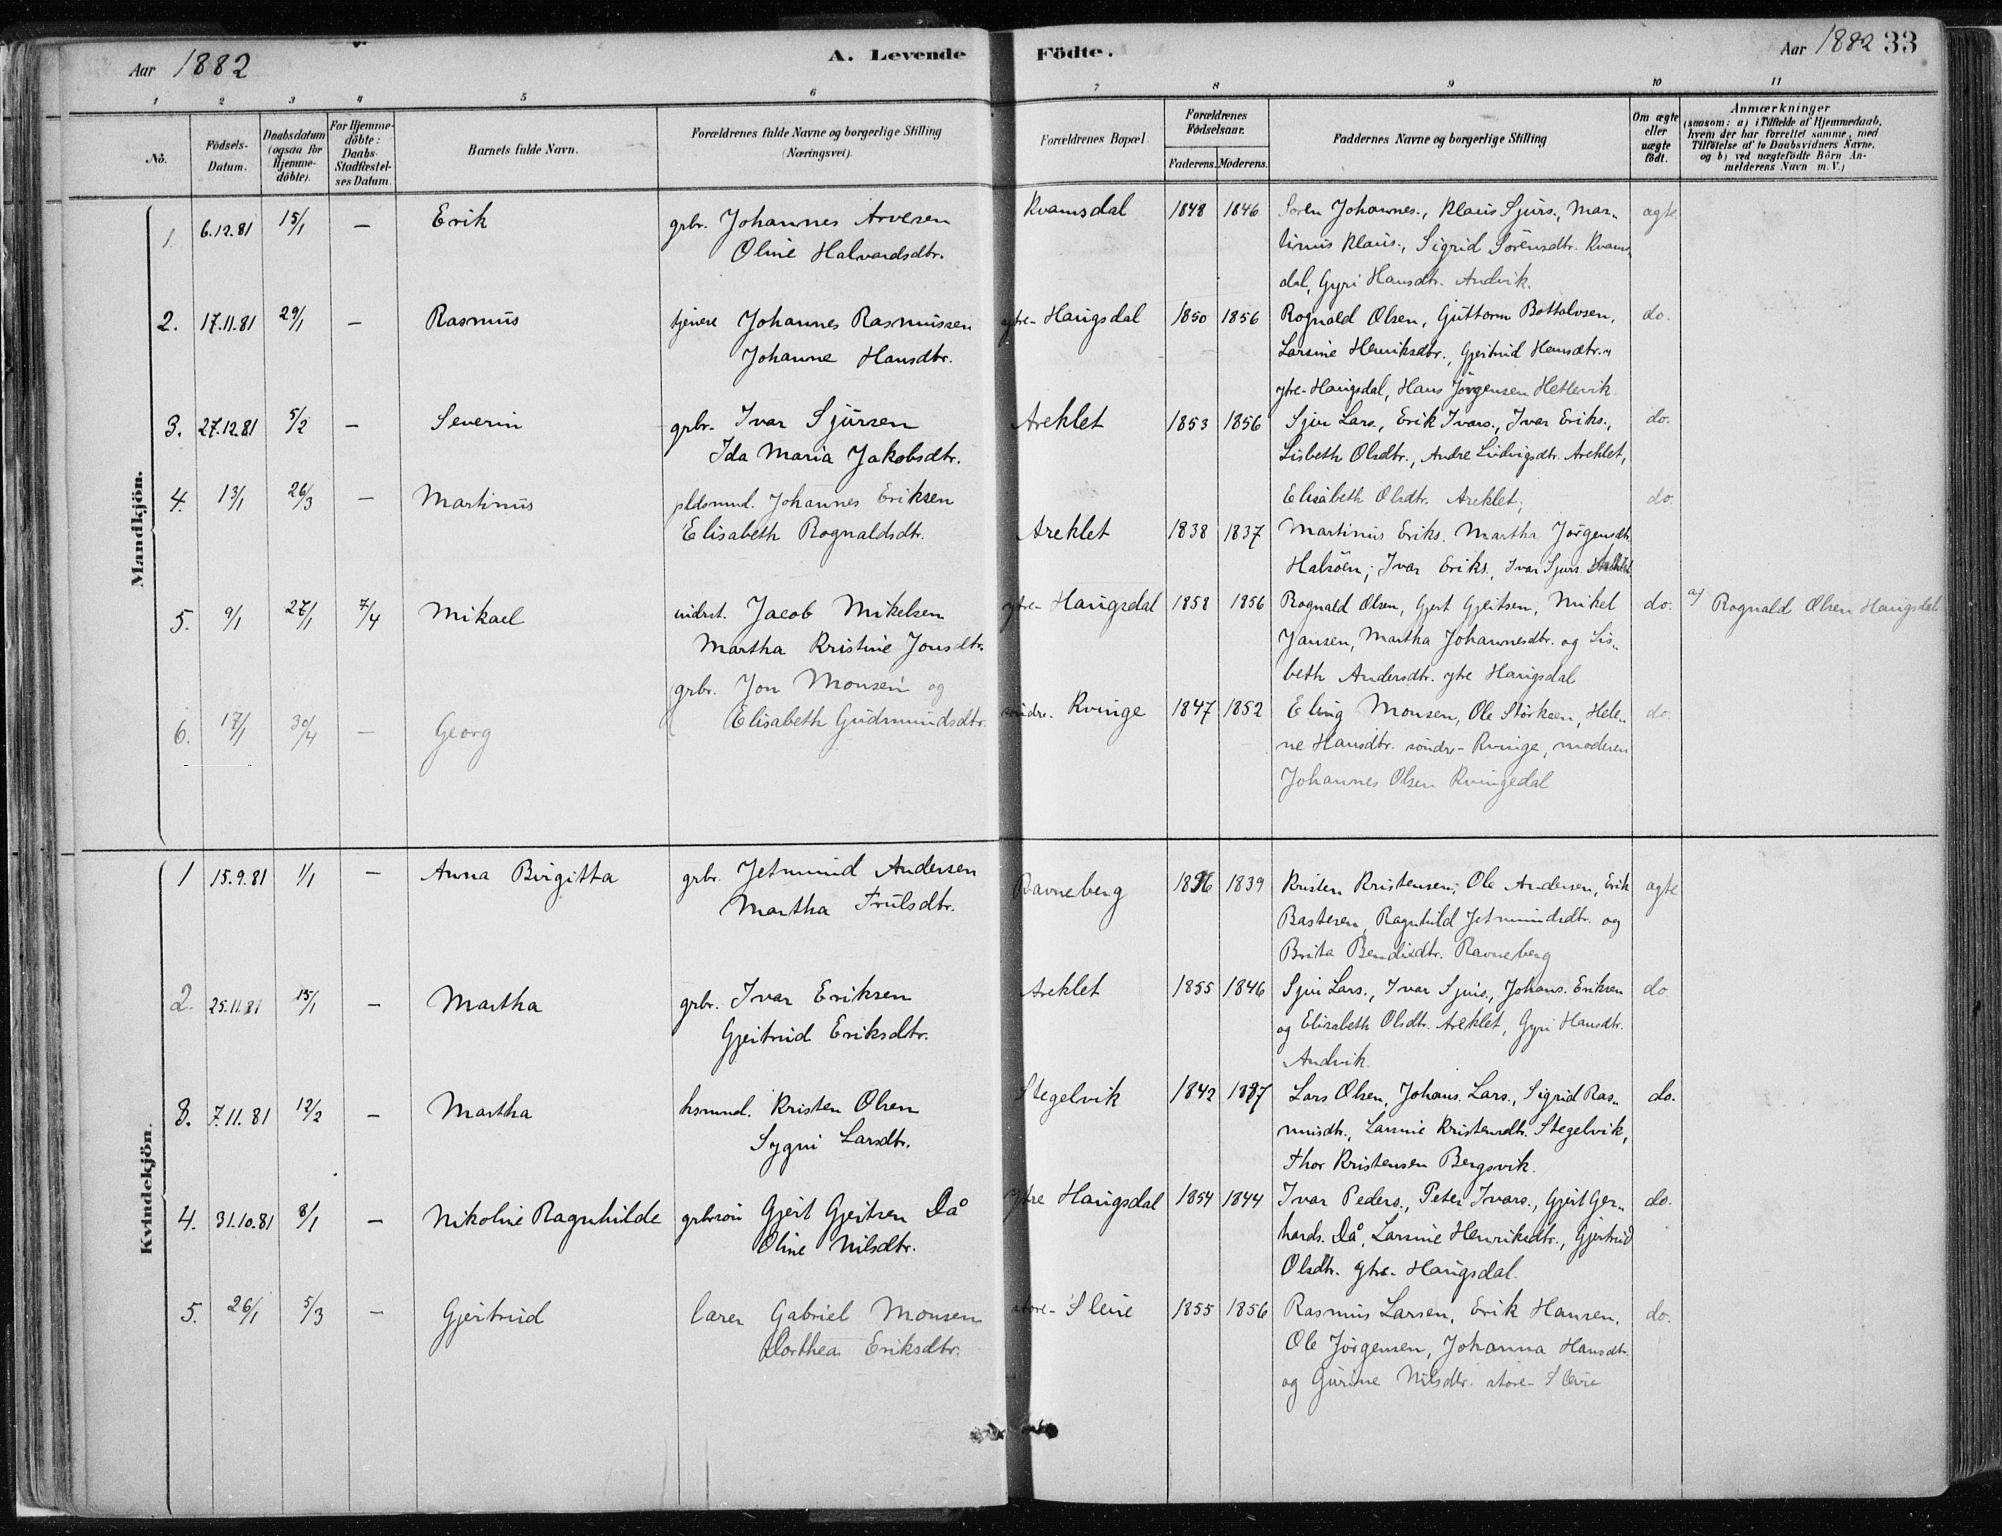 Aar 1882
A. Levende Födte.
Aar 1882 33
1 2 3 4 5 6 7 8 9 10 11
No.
Födsels-Datum.
Daabsdatum (ogsaa for Hjemme-döbte).
For Hjemme-döbte: Daabs-Stadfæstel-ses Datum.
Barnets fulde Navn.
Forældrenes fulde Navne og borgerlige Stilling (Næringsvei).
Forældrenes Bopæl.
Forældrenes Födselsaar.
Faderens. Moderens.
Faddernes Navne og borgerlige Stilling
Om ægte eller uægte födt.
Anmærkninger
(saasom: a) i Tilfælde af Hjemmedaab,
hvem der har forrettet samme, med
Tilföielse af to Daabsvidners Navne,
og b) ved uægtefödte Börn An-
melderens Navn m. V.)
Mandkjön.
1. 6.12.81 15/1 — Erik grbr. Johannes Arvesen Kvamsdal 1848 1846 Sören Johannes., Klaus Sjurs., Mar- ægte
Oline Halvardsdtr. tinus Klaus., Sigrid Sörensdtr. Kvams-
dal, Gyri Hansdtr. Andvik.
2. 17.11.81 29/1 — Rasmus tjener Johannes Rasmussen ytre-Haugsdal 1850 1856 Rognald Olsen, Guttorm Bottolvsen, do.
Johanne Hansdtr. Larsine Henriksdtr., Gjertrud Hansdtr.
ytre-Haugsdal, Hans Jörgensen Hetlevik
3. 27.12.81 5/2 — Severin grbr. Ivar Sjursen Areklet 1853 1856 Sjur Lars., Erik Ivars., Ivar Eriks., do.
Ida Maria Jakobsdtr. Lisbeth Olsdtr., Andre Ludvigsdtr. Areklet,
4. 13/1 26/3 — Martinus pldsmnd. Johannes Eriksen Elisabeth Olsdtr. Areklet; do.
Elisabeth Rognaldsdtr. Areklet 1838 1837 Martinus Eriks. Martha Jörgensdtr.
Halsöen; Ivar Eriks., Ivar Sjurs. Areklet
5. 9/1 27/1 7/4 Mikael inderst. Jacob Mikelsen ytre-Haugsdal 1858 1856 Rognald Olsen, Gjert Gjertsen, Mikel do. a) Rognald Olsen Haugsdal
Martha Kristine Jonsdtr. Jansen, Martha Johannesdtr. og Lis-
beth Andersdtr. ytre Haugsdal
6. 17/1 30/4 — Georg grbr. Jon Monsen og söndre-Kvinge 1847 1852 Eling Monsen, Ole Störksen, Hele- do.
Elisabeth Gudmundsdtr. ne Hansdtr. söndre-Kvinge, moderen
Johannes Olsen Kvingedal
Kvindekjön.
1 15.9.81 1/1 — Anna Birgitta grbr. Jetmund Andersen Ravneberg 1836 1839 Kristen Kristensen, Ole Andersen, Erik ægte
Martha Trulsdtr. Bastesen, Ragnhild Jetmundsdtr. og
Brita Bendixdtr. Ravneberg
2. 25.11.81 15/1 — Martha grbr. Ivar Eriksen Areklet 1855 1846 Sjur Lars., Ivar Sjurs., Johans. Eriksen do.
Gjertrud Eriksdtr. og Elisabeth Olsdtr. Areklet, Gyri Hansdtr.
Andvik.
3. 7.11.81 12/2 — Martha hsmnd. Kristen Olsen Stegelvik 1842 Lars Olsen, Johans. Lars., Sigrid Ras- do.
Sygni Larsdtr. musdtr., Larsine Kristensdtr. Stegelvik,
Thor Kristensen Bergsvik.
4. 31.10.81 8/1 — Nikoline Ragnhilde grbrsön Gjert Gjertsen Då ytre Haugsdal 1854 1844 Ivar Peders., Peter Ivars., Gjert Ger- do.
Oline Nilsdtr. hards. Då, Larsine Henriksdtr., Gjertrud
Olsdtr. ytre-Haugsdal.
5. 26/1 5/3 — Gjertrud lærer Gabriel Monsen store-Sleire 1855 1856 Rasmus Larsen, Erik Hansen, do.
Dorthea Eriksdtr. Ole Jörgensen, Johanna Hansdtr.
og Gurine Nilsdtr. store-Sleire